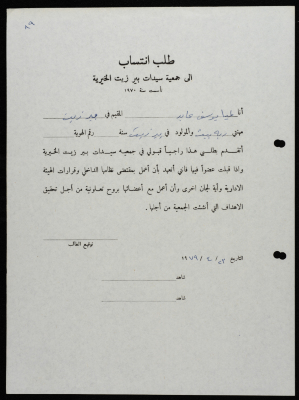 ٨٩
طلب انتساب
الى جمعية سيدات بير زيت الخيرية
تأسست سنة ١٩٧٠
أنا يوسف المقيم في بير زيت
مهنتي والمولود في بير زيت سنة رقم الهوية
أتقدم بطلبي هذا راجياً قبولي في جمعية سيدات بير زيت الخيرية
واذا قبلت عضواً فيها فاني أتعهد بأن أعمل بمقتضى نظامها الداخلي وقرارات الهيئة
الادارية وأية لجان اخرى وأن أعمل مع أعضائها بروح تعاونية من أجل تحقيق
الاهداف التي أنشئت الجمعية من أجلها.
توقيع الطالب
التاريخ / ٢ / ١٩٧٩
شاهد
شاهد